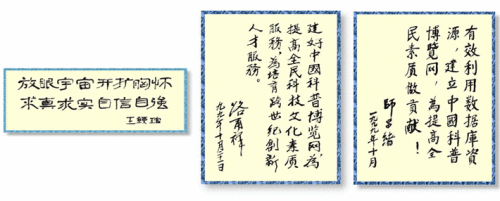 放眼宇宙开扩胸怀
求真求实自信自強
王綬琯
建好中國科普博覽网,为
提高全民科技文化素质
服務,为培育跨世纪創新
人才服務。
路甬祥
九九年十月二十一日
有效利用数據庫資
源,建立中國科普
博覽网,為提高全
民素质做貢献!
师昌绪
一九九九年十月